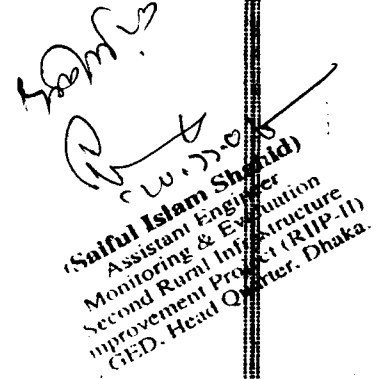 (Saiful Islam Shahid)
Assistant Engineer
Monitoring & Evaluation
Second Rural Infrastructure
mprovement Project (RIIP-II)
GED. Head Quarter. Dhaka.